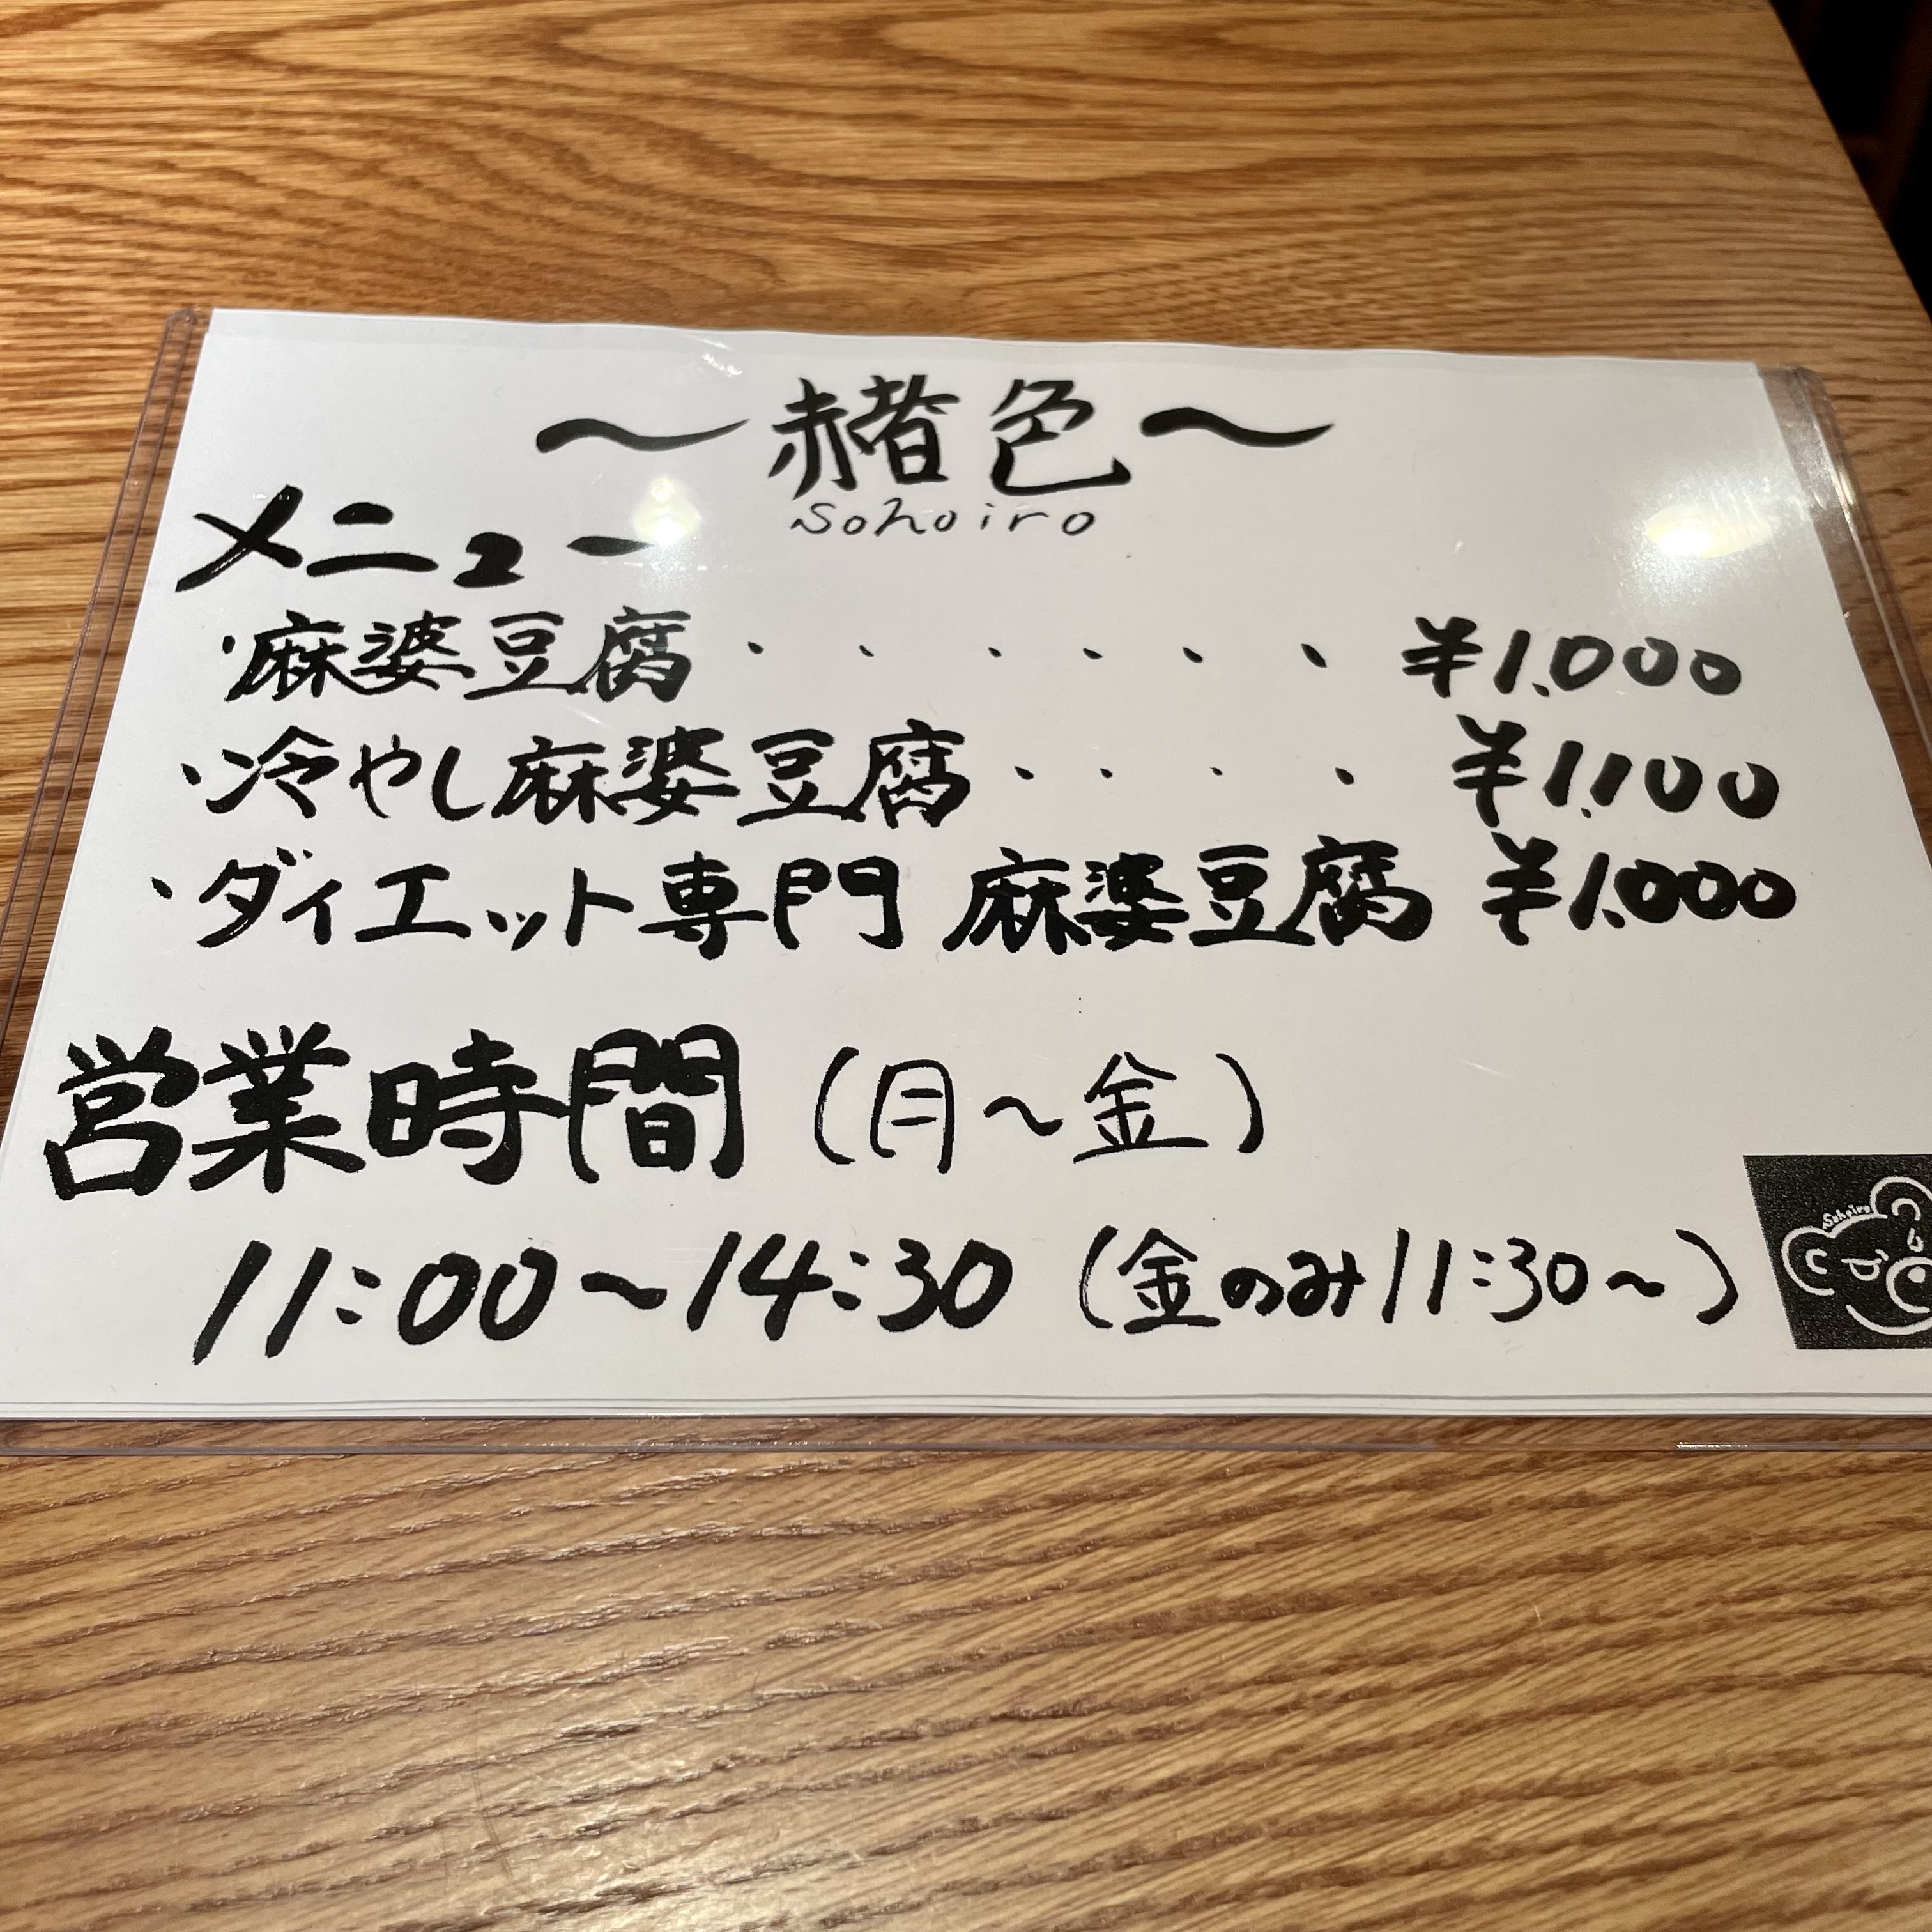 〜赭色〜
Sohoiro
メニュー
・麻婆豆腐・・・・・・¥1,000
・冷やし麻婆豆腐・・・・¥1,100
・ダイエット専門 麻婆豆腐 ¥1,000
営業時間(月〜金)
11:00〜14:30(金のみ11:30〜)
Sohoiro